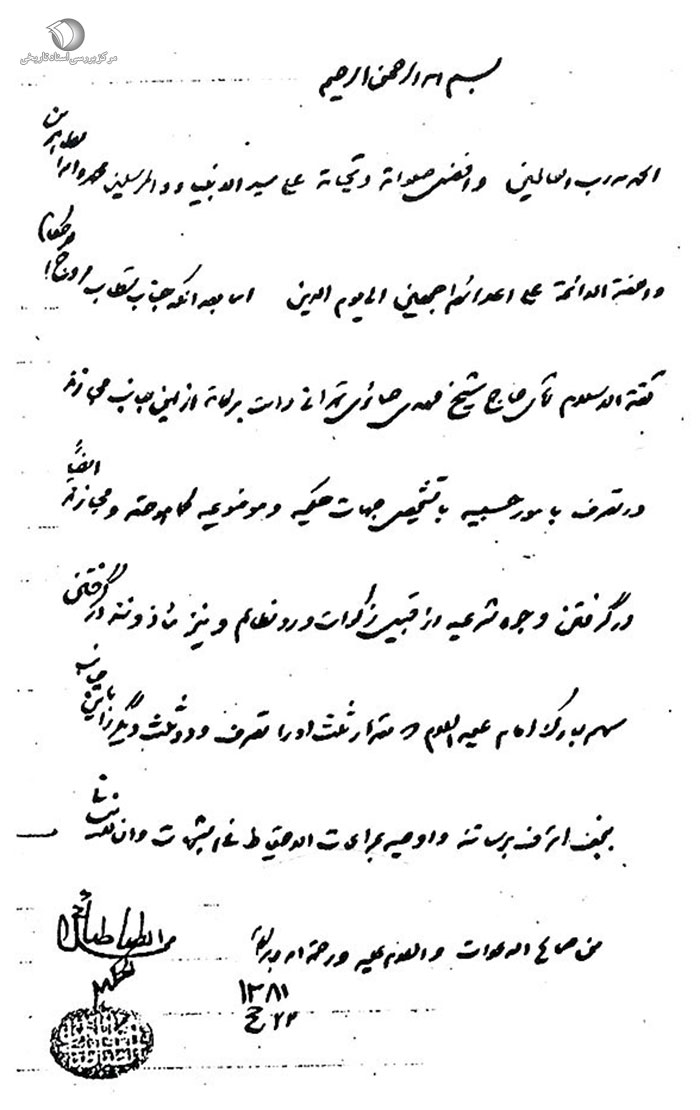 مرکز بررسی اسناد تاریخی
بسم الله الرحمن الرحیم
الحمد لله رب العالمین وافضل صلواته وتحیاته علی سید الانبیاء والمرسلین محمد واله الطاهرین
واللعنة الدائمة علی اعدائهم اجمعین الی یوم الدین اما بعد انکه جناب مستطاب مروج الاحکام
ثقة الاسلام اقای حاج شیخ مهدی حائری تهرانی دامت برکاته از این جانب مجازند
در تصرف بامور حسبیه با تشخیص جهات حکمیه و موضوعیه کما هو حقه و مجازند ایضاً
در گرفتن وجوه شرعیه از قبیل زکوات و رد مظالم و نیز ماذونند در گرفتن
سهم مبارک امام علیه السلام و مقدار ثلث اورا تصرف و دو ثلث دیگر را باین جانب
بنجف اشرف برسانند واوصیه بمراعات الاحتیاط فی الشبهات وان لا ینسانی
من صالح الدعوات والسلام علیه ورحمة الله وبرکاته
محسن الطباطبائی
الحکیم
۱۳۸۱
۲۲ ج